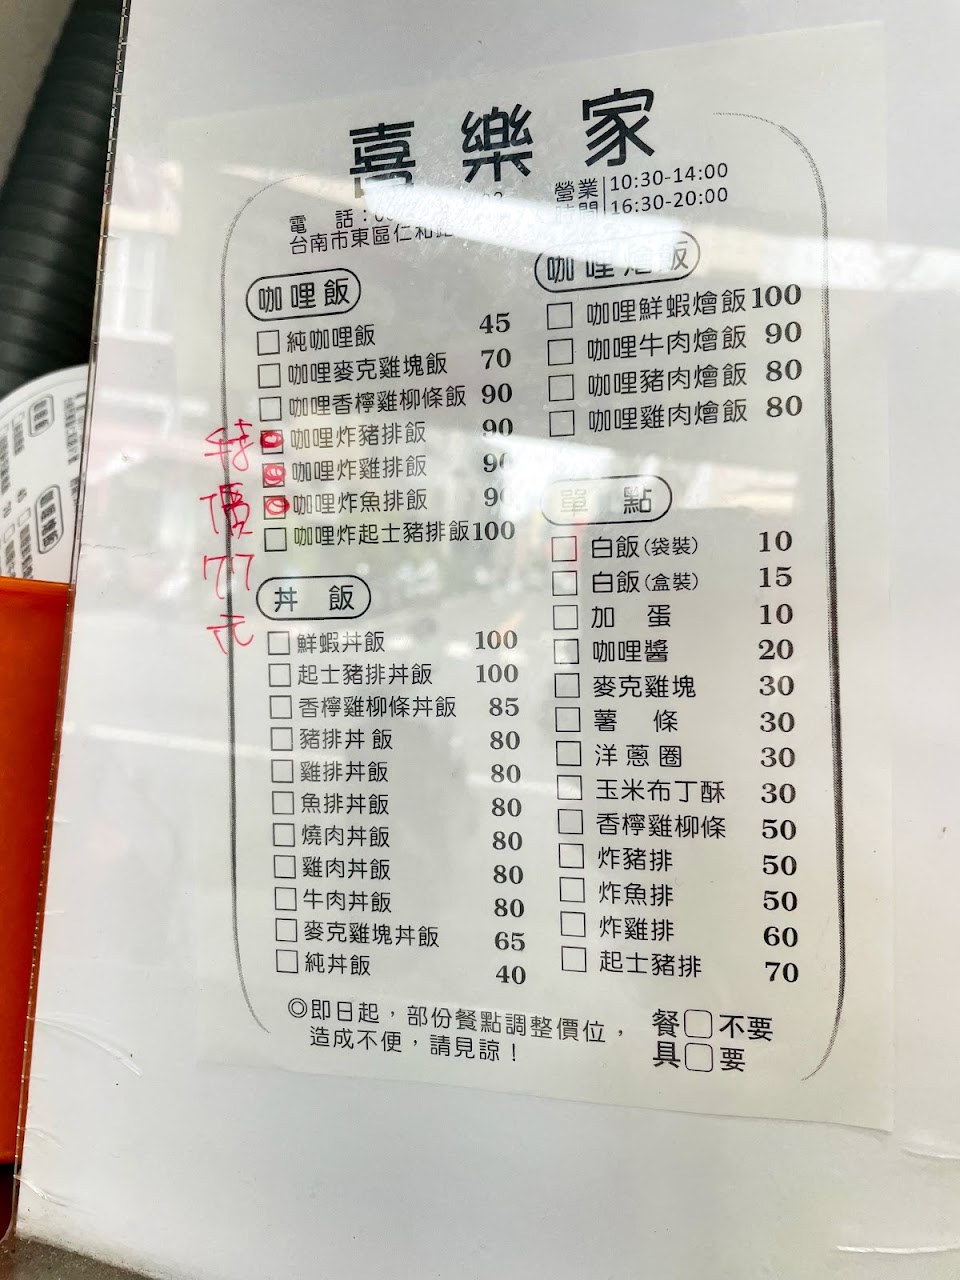 喜樂家
電話：
台南市東區仁和
營業 10:30-14:00
時間 16:30-20:00
咖哩飯
純咖哩飯 45
咖哩麥克雞塊飯 70
咖哩香檸雞柳條飯 90
咖哩炸豬排飯 90
咖哩炸雞排飯 90
咖哩炸魚排飯 90
咖哩炸起士豬排飯 100
特價77元
丼飯
鮮蝦丼飯 100
起士豬排丼飯 100
香檸雞柳條丼飯 85
豬排丼飯 80
雞排丼飯 80
魚排丼飯 80
燒肉丼飯 80
雞肉丼飯 80
牛肉丼飯 80
麥克雞塊丼飯 65
純丼飯 40
咖哩燴飯
咖哩鮮蝦燴飯 100
咖哩牛肉燴飯 90
咖哩豬肉燴飯 80
咖哩雞肉燴飯 80
單點
白飯(袋裝) 10
白飯(盒裝) 15
加蛋 10
咖哩醬 20
麥克雞塊 30
薯條 30
洋蔥圈 30
玉米布丁酥 30
香檸雞柳條 50
炸豬排 50
炸魚排 50
炸雞排 60
起士豬排 70
◎即日起，部份餐點調整價位，
造成不便，請見諒！
餐 不要
具 要